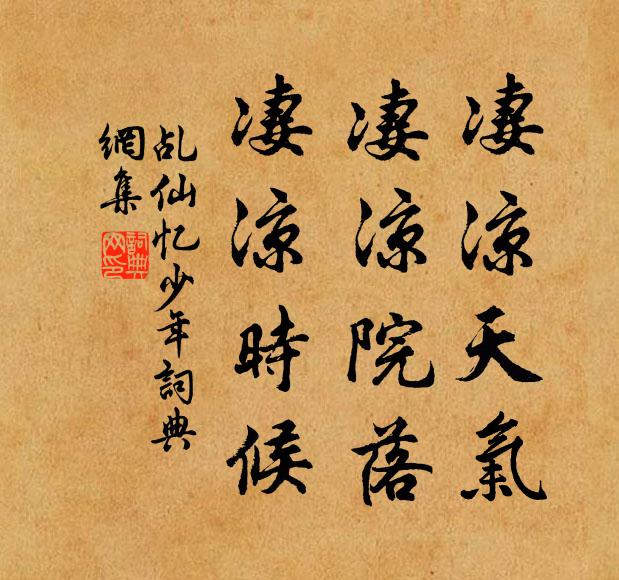 凄涼天氣
凄涼院落
凄涼時候
乩仙忆少年詞典
網集
詞典
网印